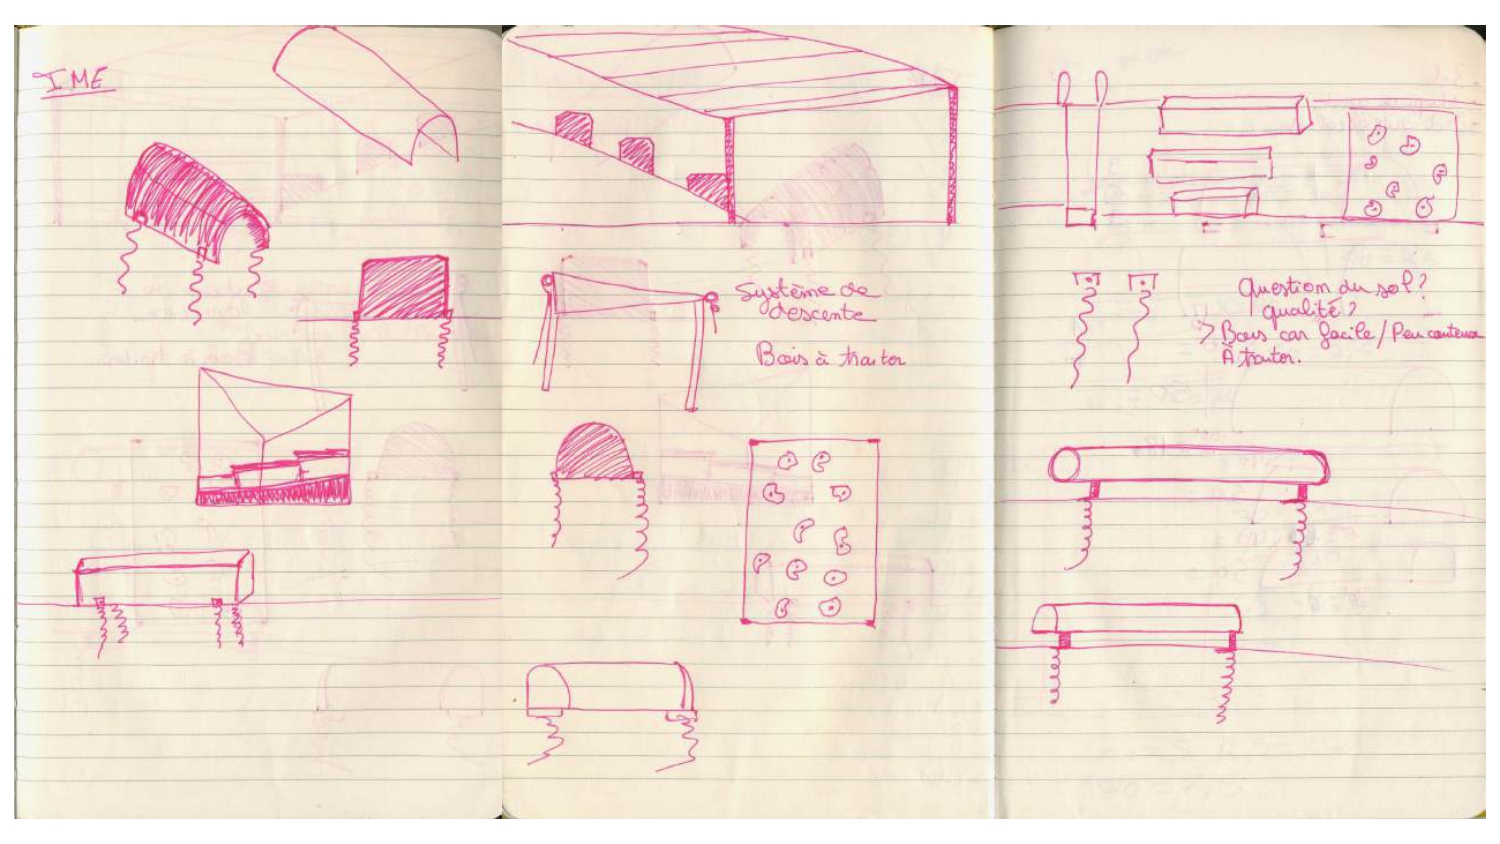 IME
Système de
descente
Bois à traiter
Question du sol?
qualité?
> Bois car facile / Peu couteux
À traiter.